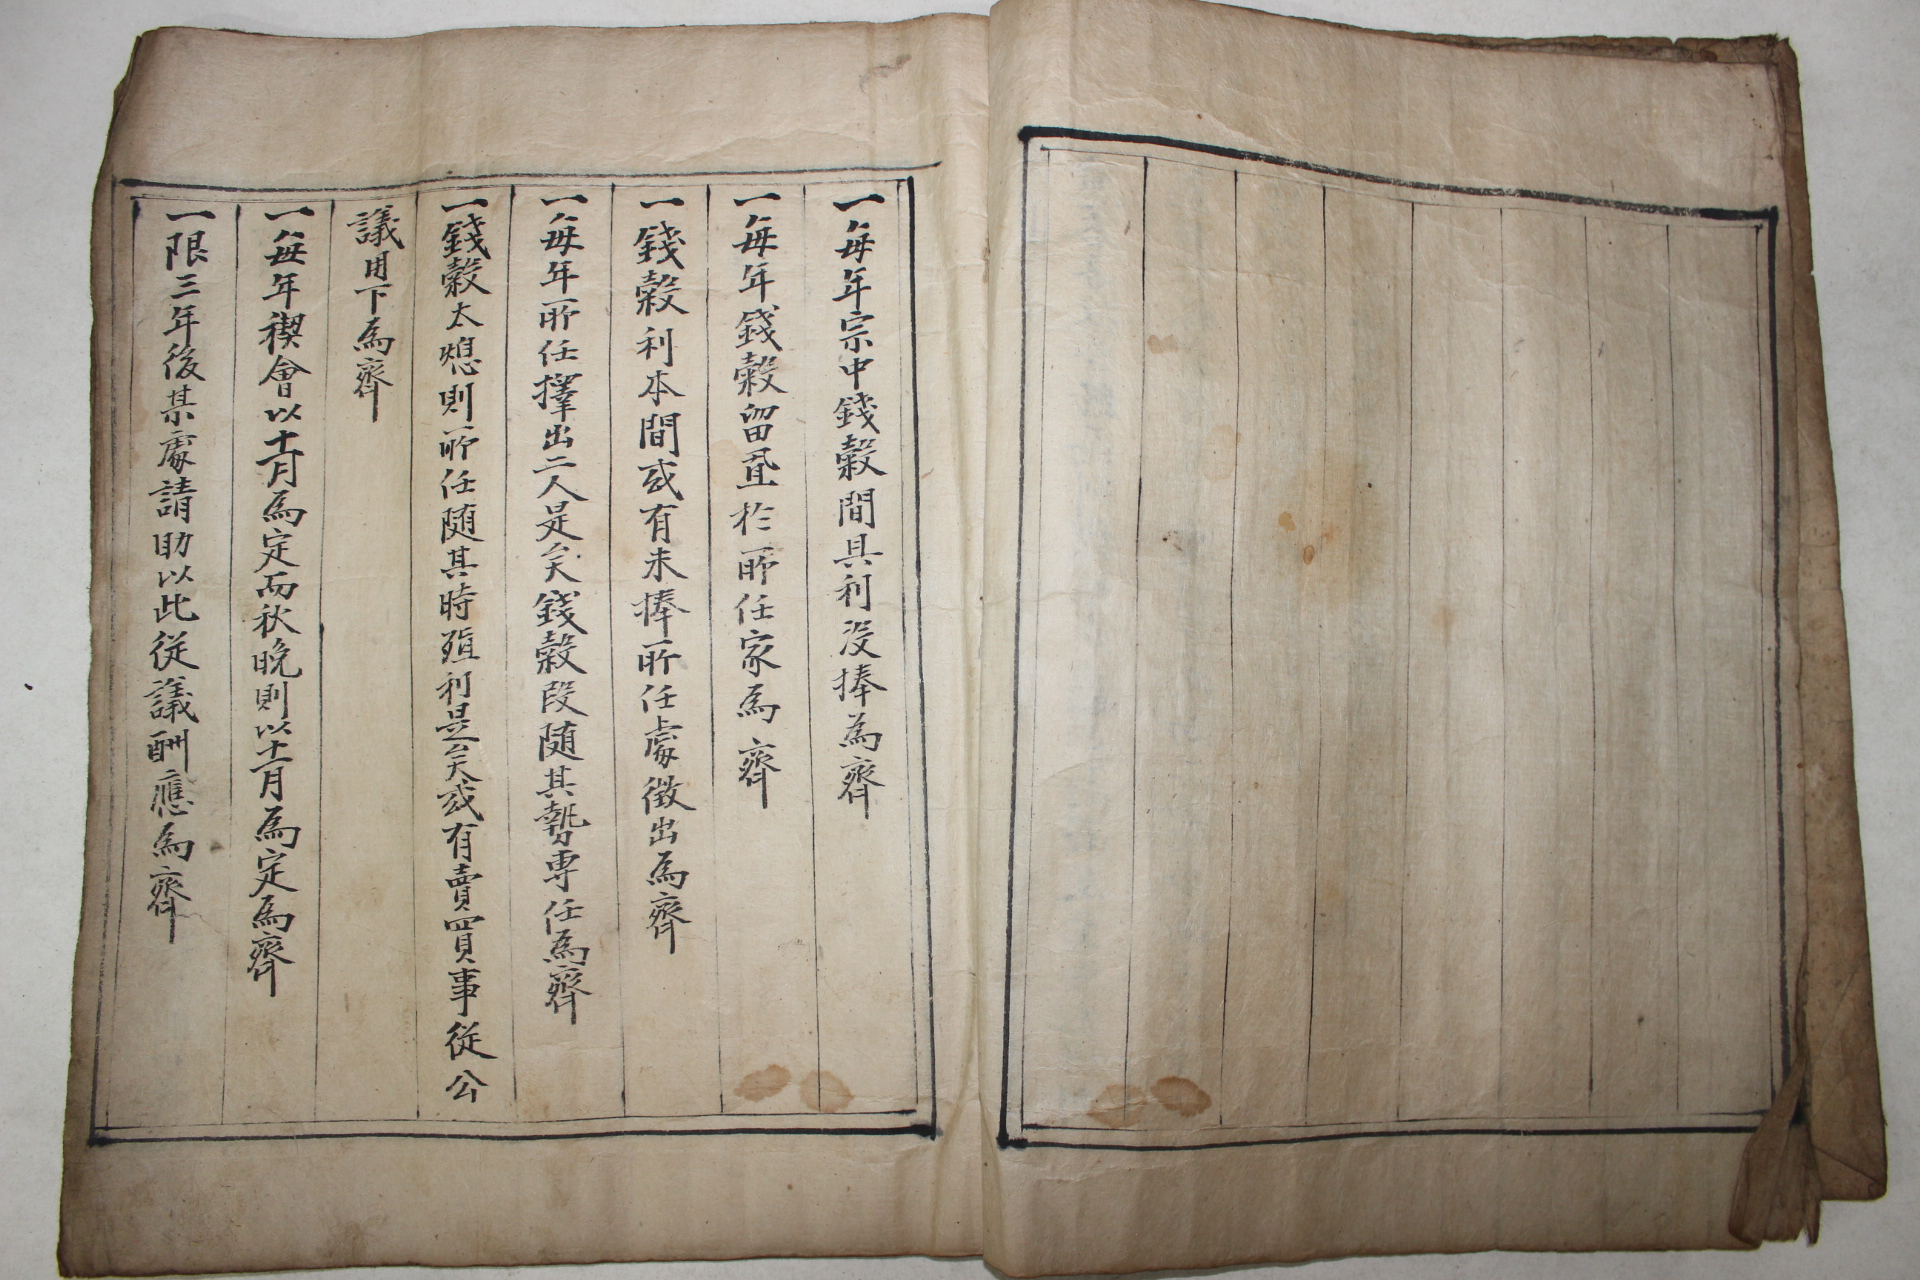 一每年宗中錢穀間具利没捧為齊
一每年錢穀留置於所任家為齊
一錢穀利本間或有未捧所任處徵出為齊
一每年所任擇出二人是矣錢穀段随其勢專任為齊
一錢穀太則所任随其時殖利是矣或有賣買事從公
議用下為齊
一每年稧會以十一月為定而秋晚則以十二月為定為齊
一限三年後某處請助以此從議酬應為齊